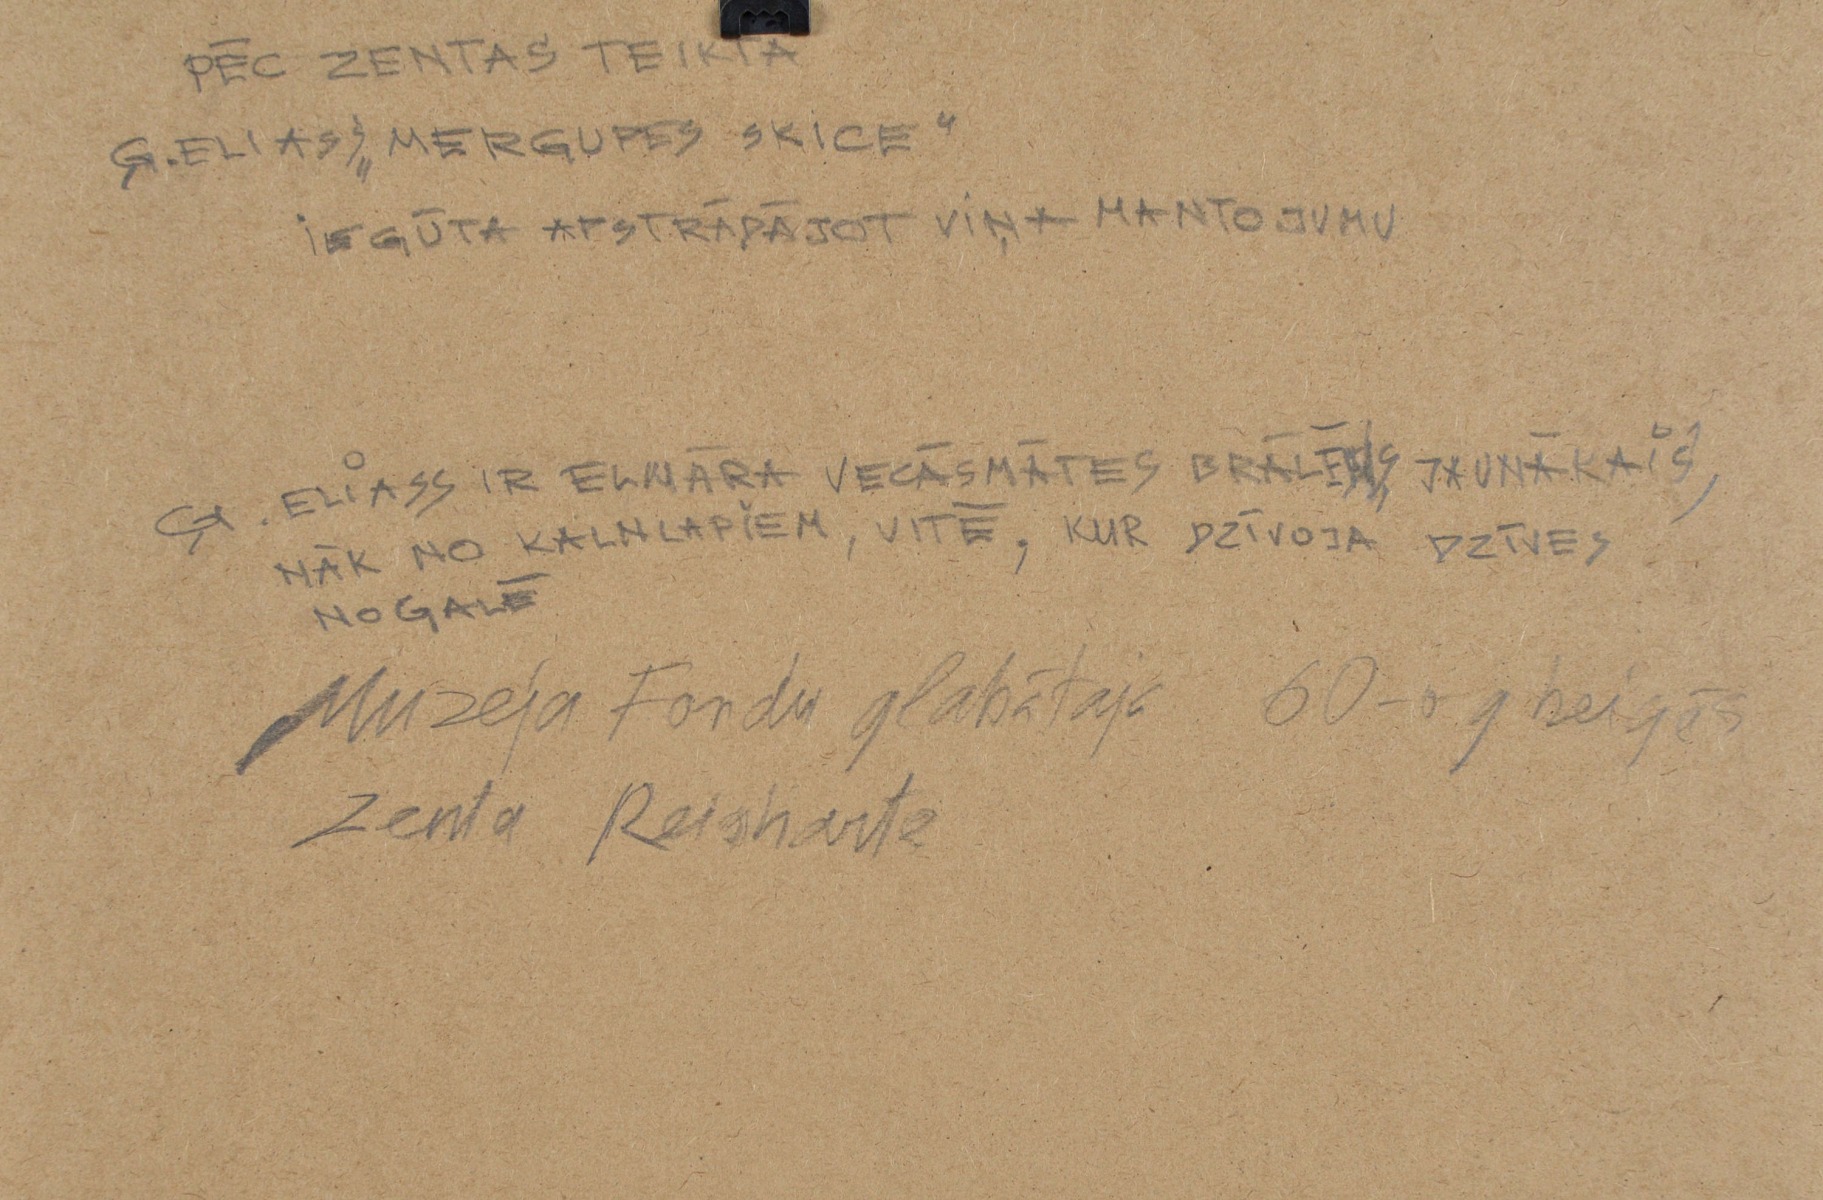 PĒC ZENTAS TEIKTĀ
Ģ. ELIASS „MERGUPES SKICE“
IEGŪTA APSTRĀDĀJOT VIŅA MANTOJUMU
Ģ. ELIASS IR ELMĀRA VECĀSMĀTES BRĀLĒNS JAUNĀKAIS,
NĀK NO KALNLAPIEM, VITĒ, KUR DZĪVOJA DZĪVES
NOGALĒ
Muzeja Fondu glabātāja 60-o g beigās
Zenta